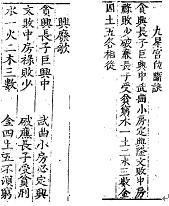 九星宮位斷訣
貪興長子巨興中武曲小房定興隆文敗中房
祿敗少破應長子受貧窮水一土二木三數金
四土五各相從
興廢歌
貪興長子巨興中　武曲小房必定興
文敗中房祿敗少　破應長子受貧刑
水一火二木三數　金四土五不須窮